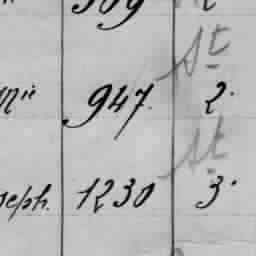 St
947. 2.
St
seph. 1230 3.